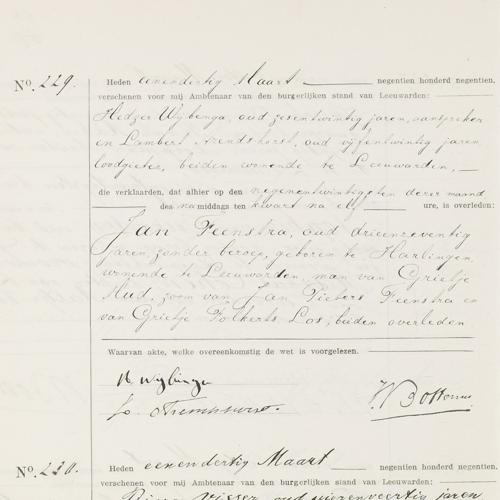 No. 229.
Heden eenendertig Maart negentien honderd negentien,
verschenen voor mij Ambtenaar van den burgerlijken stand van Leeuwarden:
Hedzer Wybenga, oud zesentwintig jaren, aanspreker
en Lambert Arendshorst, oud vijfentwintig jaren,
loodgieter, beiden wonende te Leeuwarden,
die verklaarden, dat alhier op den negenentwintigsten dezer maand
des namiddags ten kwart na elf ure, is overleden:
Jan Feenstra, oud drieenzeventig
jaren, zonder beroep, geboren te Harlingen,
wonende te Leeuwarden, man van Grietje
Mud, zoon van Jan Piebers Feenstra en
van Grietje Folkerts Los, beiden overleden
Waarvan akte, welke overeenkomstig de wet is voorgelezen.
H Wybenga
No. 230.
Heden eenendertig Maart negentien honderd negentien,
verschenen voor mij Ambtenaar van den burgerlijken stand van Leeuwarden:
Visser, oud vierenveertig jaren